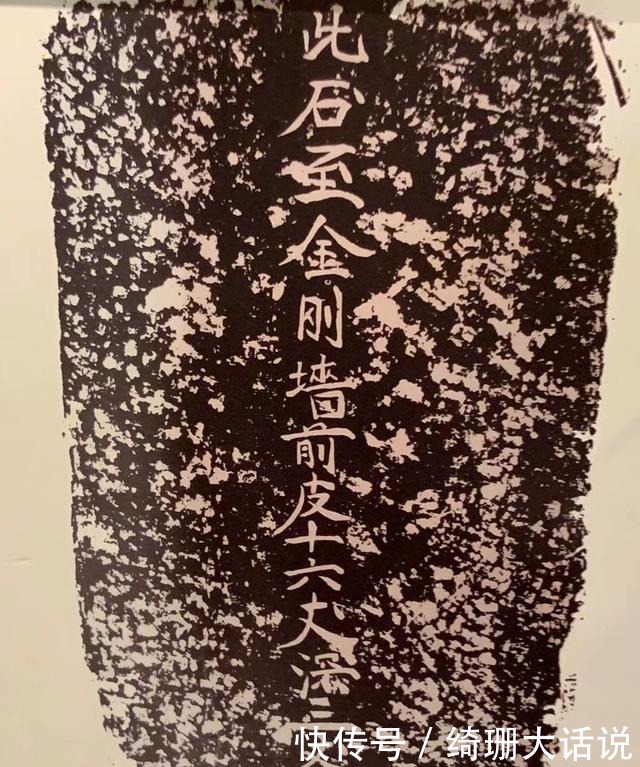 此石至金刚墙前皮十六丈深三
快传号 / 绮珊大话说